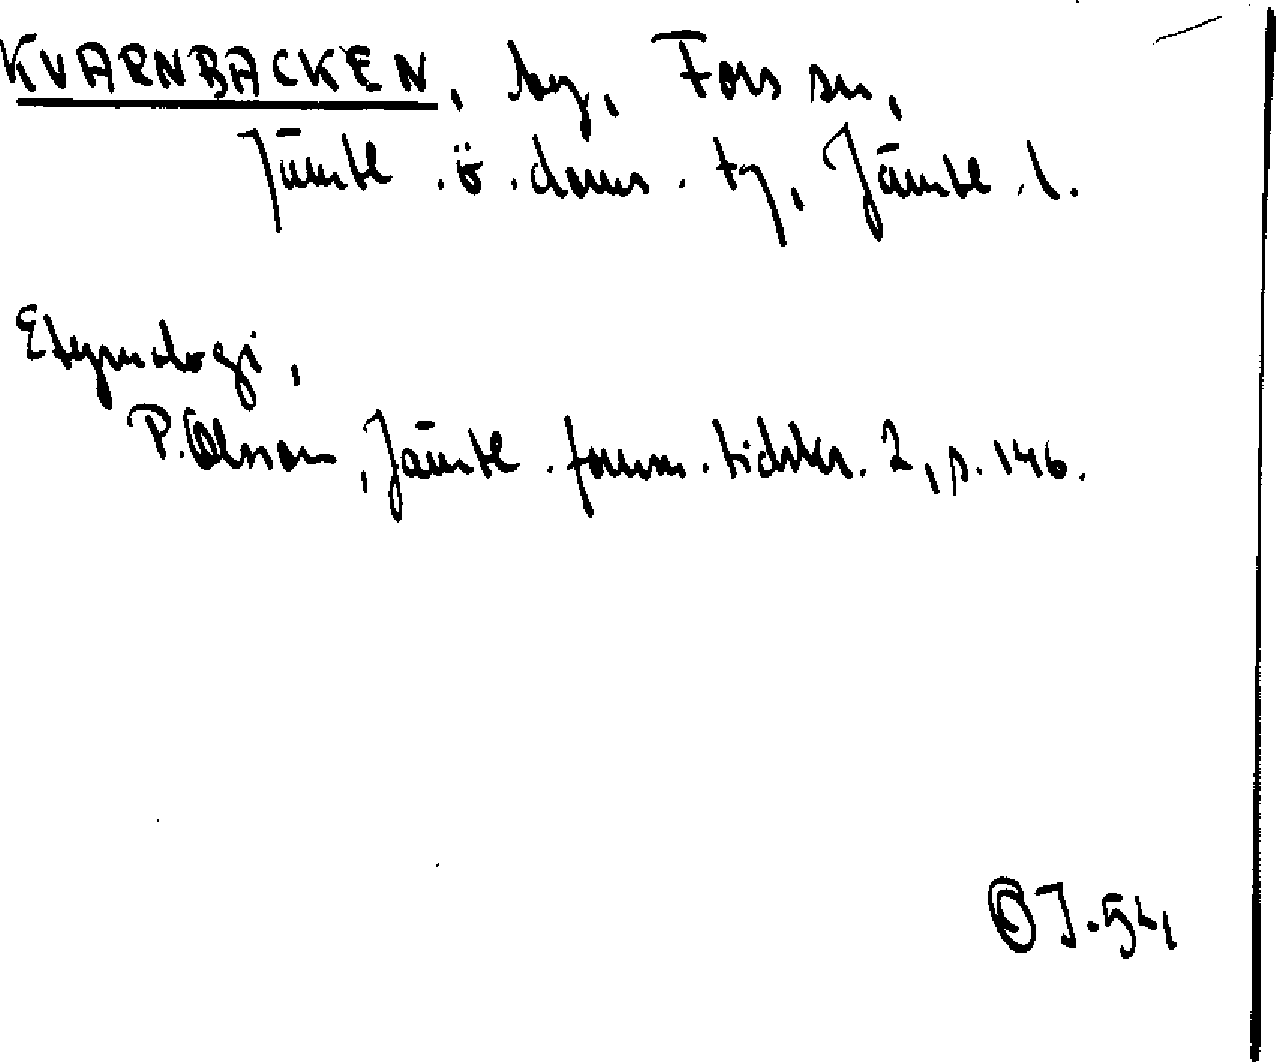 KVARNBACKEN, by, Fors sn,
Jämtl. ö. doms. tg, Jämtl. l.
Etymologi,
P. Olsson, Jämtl. fornm. tidskr. 2, s. 146.
OJ. 54